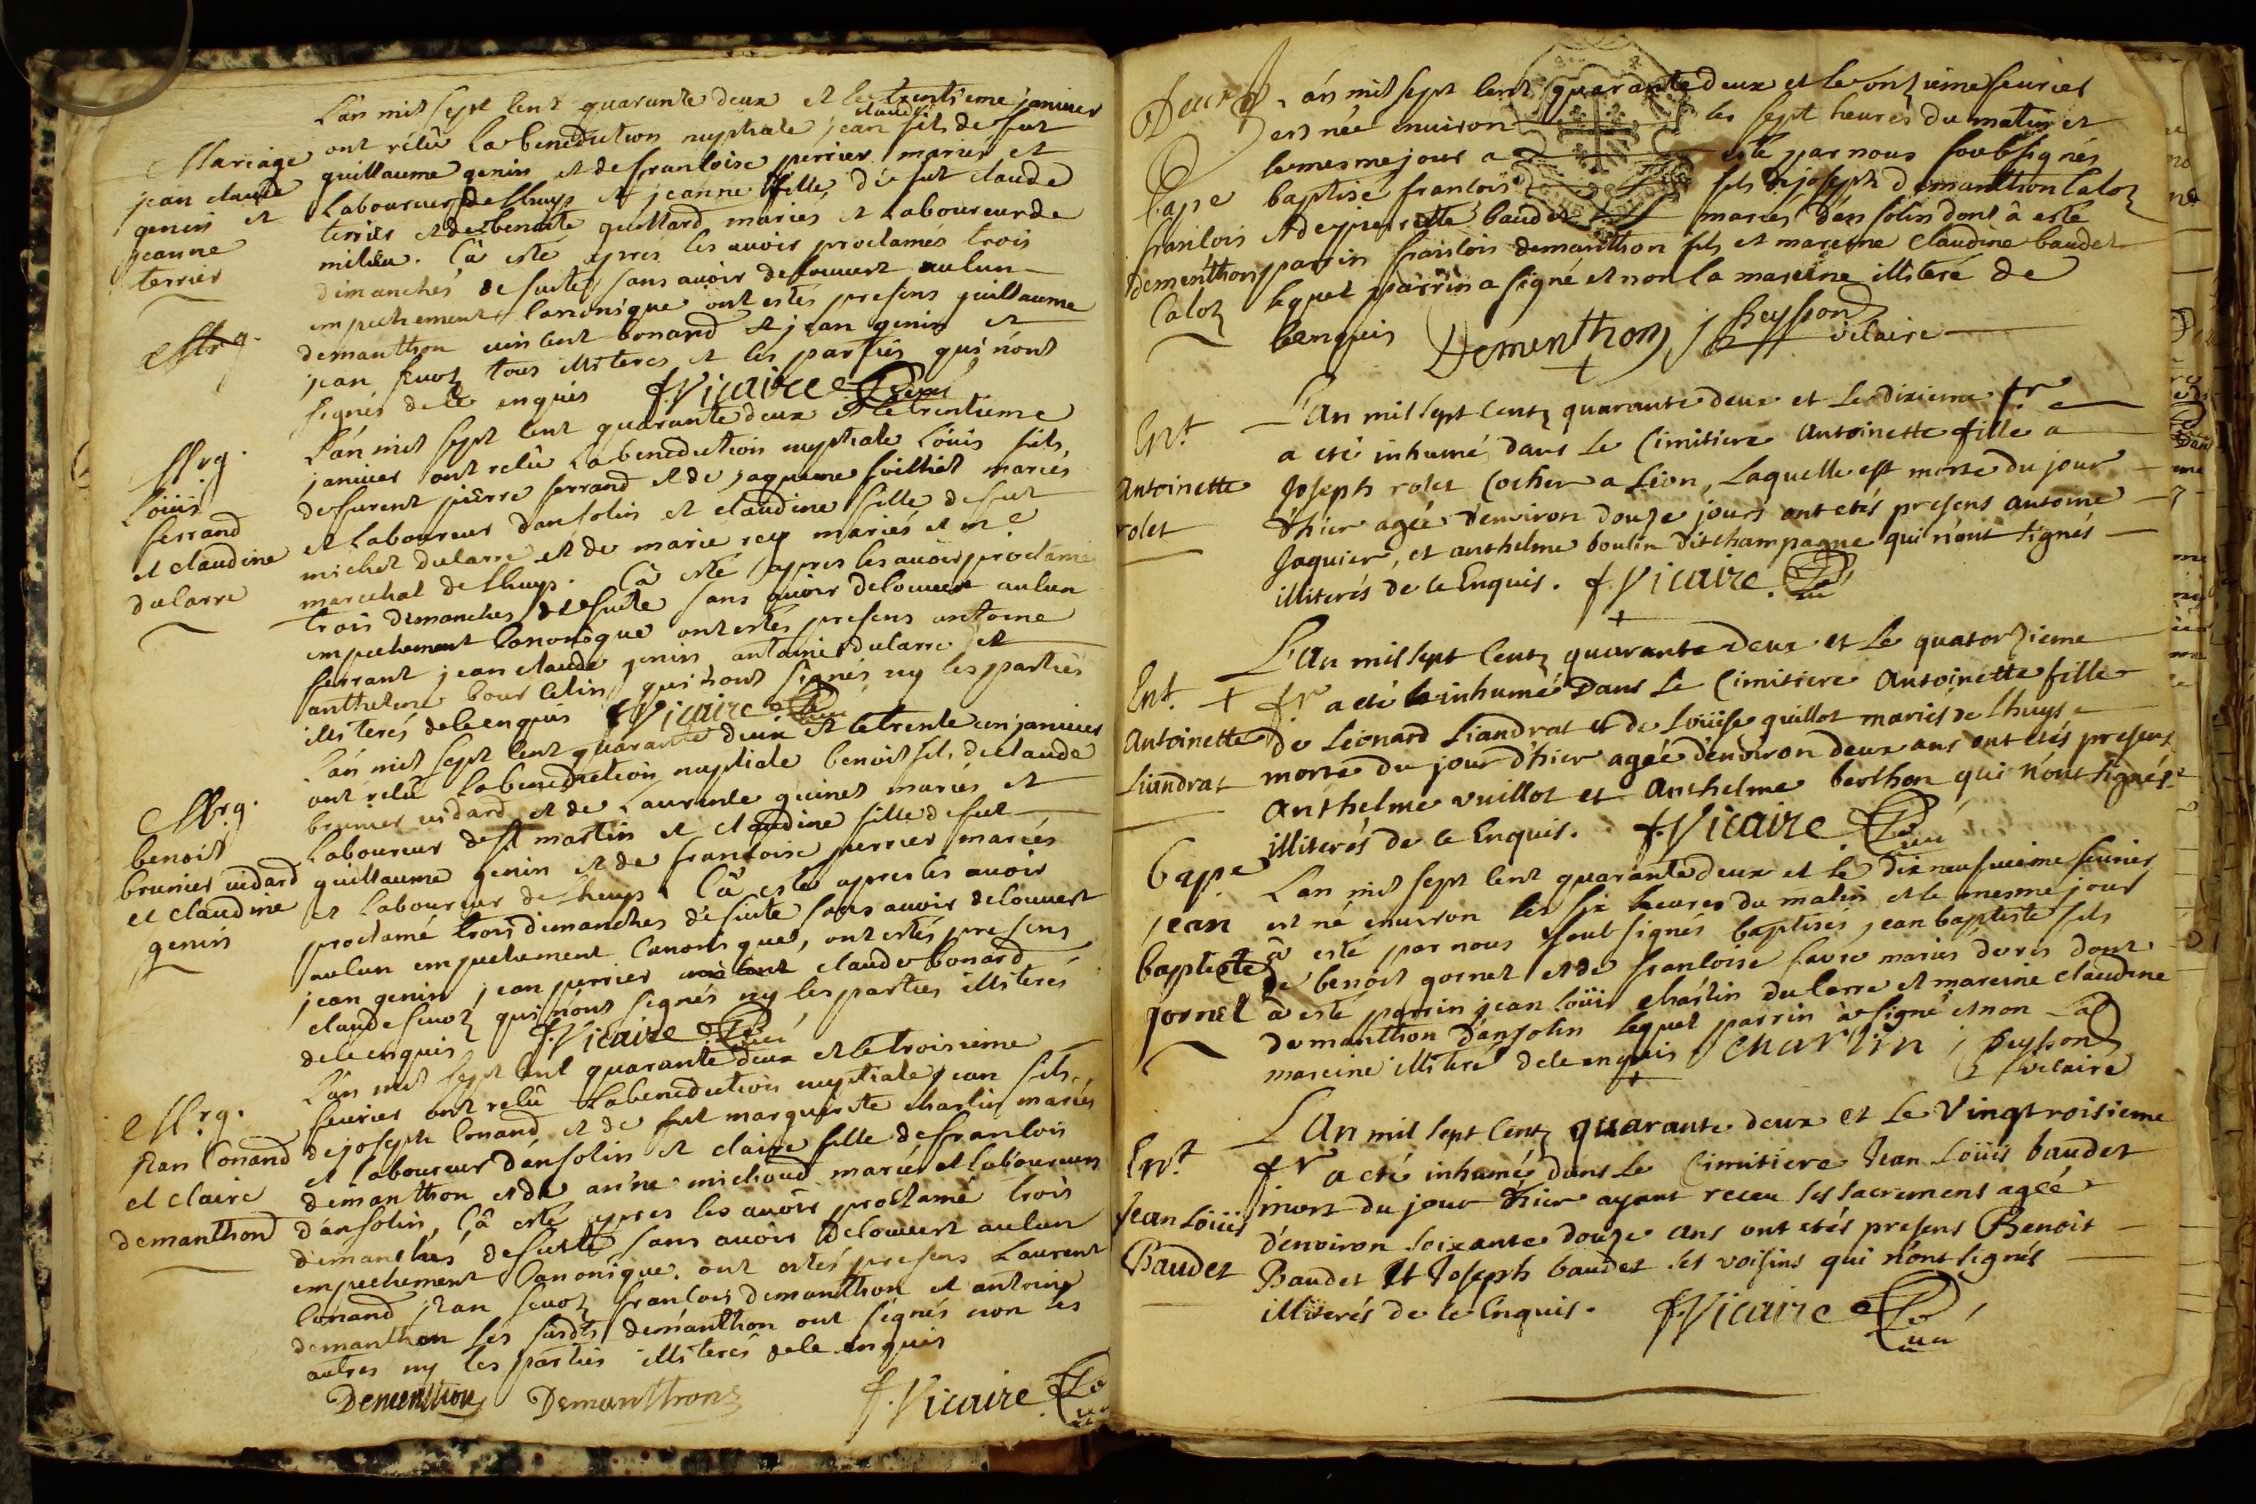 Mariage
jean claude
genin et
jeanne
terrier
L'an mil sept cent quarante deux et le trentieme janvier
ont rélû la benediction nuptiale jean claude fils de fut
guillaume genin et de francoise perrier mariés et
Laboureurs de Lhuys et jeanne fille de fut claude
terrier et de benoite guillard mariés et Laboureur de
milieu. Cà esté apres les avoir proclamés trois
dimanches de suite sans avoir decouvert aulcun
empechement Canonique ont estés presens guillaume
demanthon vincent bonard et jean genin et
jean sevoz tous illiteres et les parties qui n'ont
signés de ce enquis f. Vicaire Curé
Mrg.
Loüis
ferrand
et claudine
dularre
L'an mil sept cent quarante deux et le trentieme
janvier ont relû La benediction nuptiale Loüis fils
defurent pierre ferrand et de jaqueme foilliet mariés
et Laboureur dansolin et claudine fille de fut
michel dularre et de marie rey mariés et me
marechal de Lhuys. Cà esté apres les avoir proclamé
trois dimanches de suite sans avoir decouvert aulcun
empechement Canonique ont estés presens antoine
ferrant jean claude genin antoine dularre et
anthelme bourcelin qui n'ont signés ny les parties
illiterés de ce enquis f. Vicaire Curé
Mrg.
benoit
brunier vidard
et claudine
genin
L'an mil sept cent quarante deux et le trente un janvier
ont relû La benediction nuptiale benoit fils de claude
brunier vidard et de Laurence guinet mariés et
Laboureur de St martin et claudine fille de fut
guillaume genin et de francoise perrier mariés
et Laboureur de Lhuys. Cà esté apres les avoir
proclamé trois dimanches de suite sans avoir decouvert
aulcun empechement Canonique, ont estés presens
jean genin jean perrier claude bonard
claude sevoz qui n'ont signés ny les parties illiterés
de ce enquis f. Vicaire Curé
Mrg.
jean Conand
et claire
demanthon
L'an mil sept cent quarante deux et le troisieme
fevrier ont relû La benediction nuptiale jean fils
de joseph Conand et de fut marguerite charlin mariés
et Laboureur dansolin et claire fille de francois
demanthon et de anne michoud mariés et Laboureurs
dansolin, Cà esté apres les avoir proclamé trois
dimanches de suitte sans avoir decouvert aulcun
empechement Canonique. ont estés presens Laurent
Conand jean sevoz francois demanthon et antoine
demanthon les susdts demanthon ont signés non les
autres ny les parties illiterés de ce enquis
Dementhon Demanthon f. Vicaire Curé
Bape
francois
dementhon
Caloz
L'an mil sept cent quarante deux et le onzieme fevrier
est née environ les sept heures du matin et
le mesme jour a esté par nous soubsignés
baptisé francois fils de joseph demanthon Caloz
et de pierrette baudet mariés dansolin dont à esté
parrin francois demanthon fils et mareine claudine baudet
lequel parrin a signé et non la mareine illiteré de
ce enquis Dementhon j peysson vicaire
Ent
Antoinette
rolet
L'An mil sept Centz quarante deux et Le dixieme fr
a eté inhumé dans Le Cimitiere Antoinette fille a
Joseph rolet Cocher a Lion, Laquelle est morte du jour
d'hier agée d'environ douze jours ont etés presens antoine
Jaquier, et anthelme boulin dit champagne qui n'ont signés
illiterés de ce Enquis. f. Vicaire. Curé
Ent.
Antoinette
Liandrat
L'An mil sept Centz quarante deux et Le quatorzieme
fr a eté inhumé Dans Le Cimitiere Antoinette fille
de Léonard Liandrat et de Loüise guillot mariés de Lhuys
morte du jour d'hier agée d'environ deux ans ont etés presens
Anthelme vuillot et Anthelme berthon qui n'ont signés
illiterés de ce Enquis. f. Vicaire Curé
bape
jean
baptiste
gornet
L'an mil sept cent quarante deux et le dix neufvieme fevrier
est né environ les six heures du matin et le mesme jour
à esté par nous soubsignés baptisés jean baptiste fils
de benoit gornet et de francoise favre mariés dont
à esté parrin jean Loüis charlin dularre et mareine claudine
demanthon dansolin lequel parrin à signé et non La
mareine illiteré de ce enquis charlin j peysson vicaire
Ent
Jean Loüis
Baudet
L'An mil sept Centz quarante deux et Le Vingtroisieme
fr a eté inhumé dans Le Cimitiere Jean Loüis baudet
mort du jour d'hier ayant receu ses sacremens agée
d'environ soixante douze ans ont etés presens Benoit
Baudet et Joseph baudet ses voisins qui n'ont signés
illiterés de ce Enquis. f. Vicaire Curé